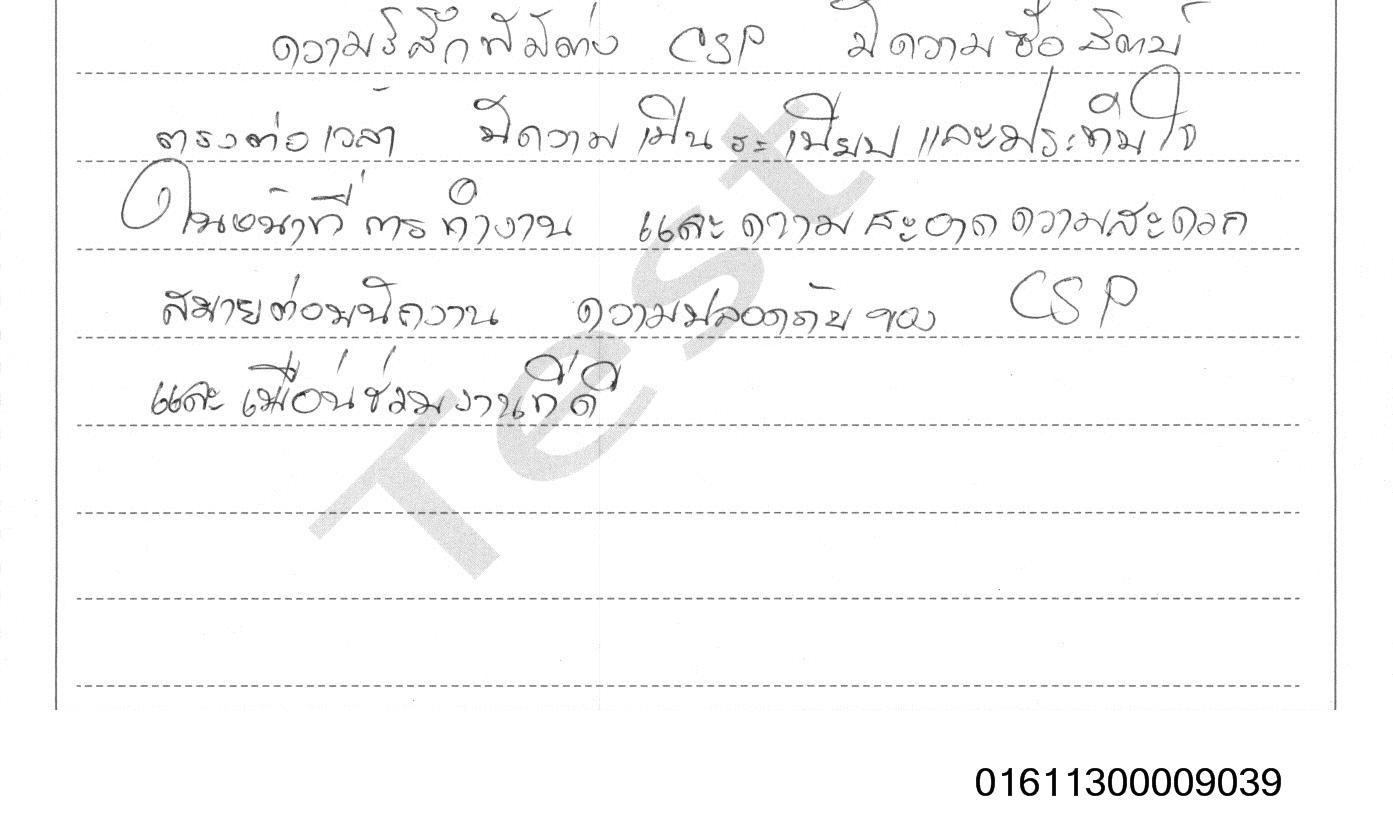 ความรู้สึกที่มีต่อ CSP มีความซื่อสัตย์
ตรงต่อเวลา มีความเป็นระเบียบ และประทับใจ
ในหน้าที่การทำงาน และความสะอาดความสะดวก
สบายต่อพนักงาน ความปลอดภัยของ CSP
และเพื่อนร่วมงานที่ดี
Test
01611300009039